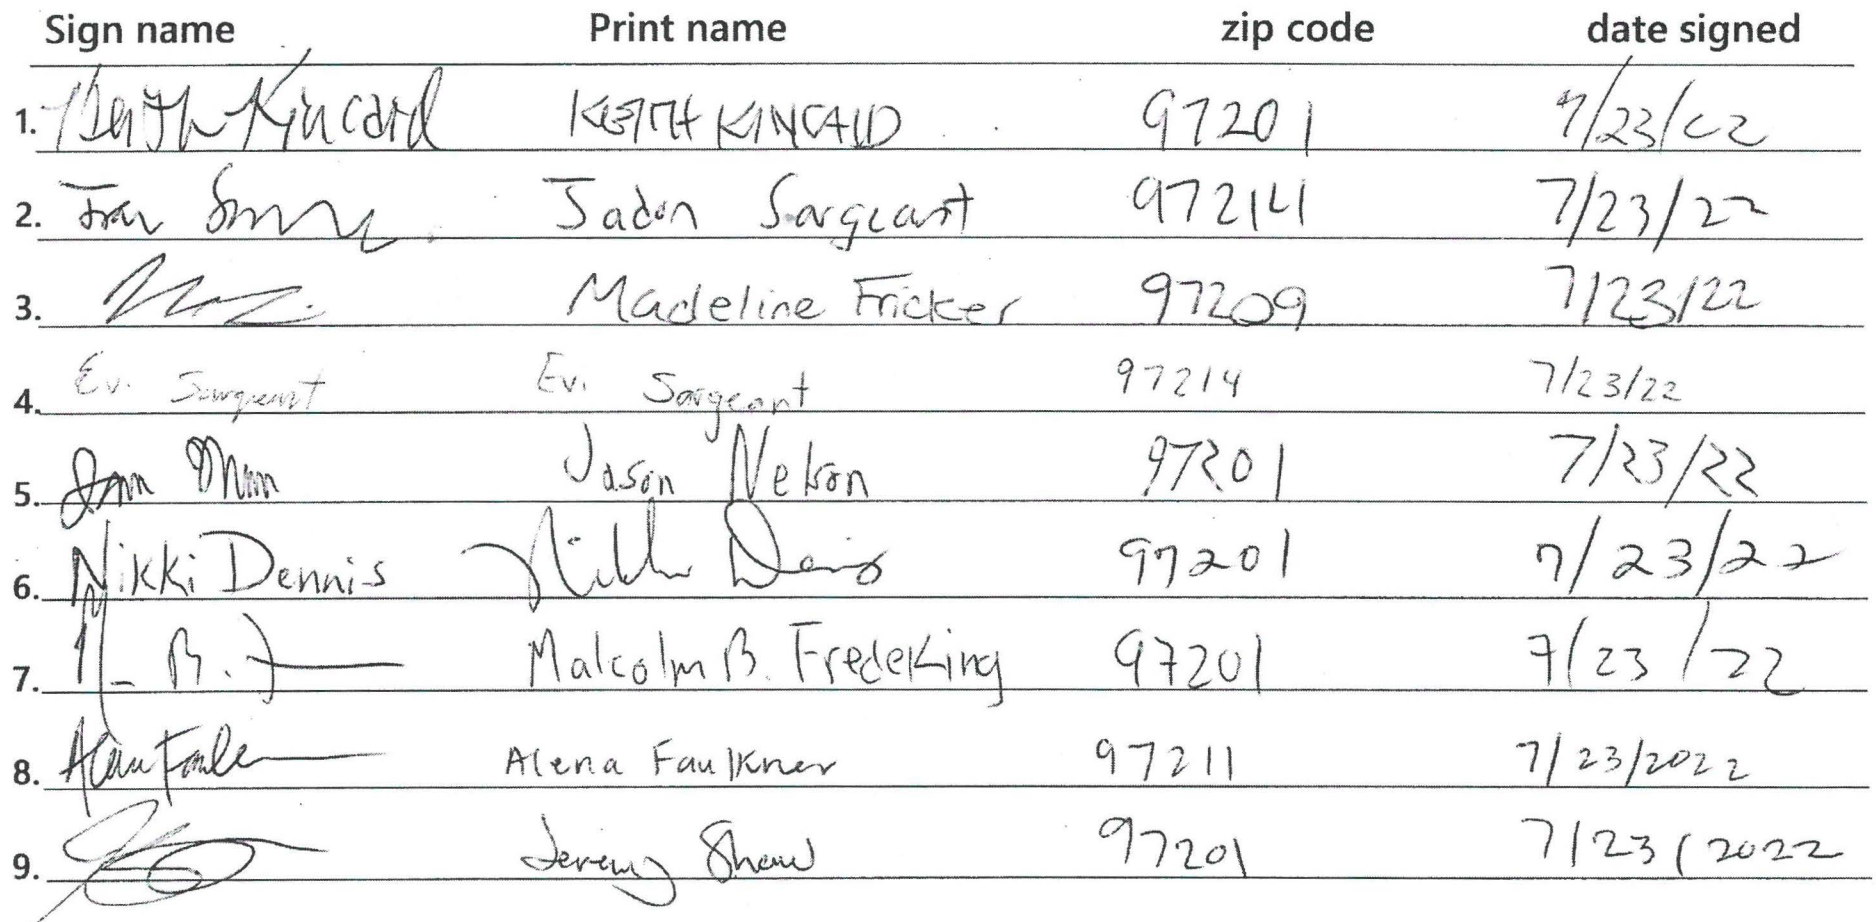 Sign name Print name zip code date signed
1. Keith Kincaid KEITH KINCAID 97201 7/23/22
2. Jadon Sargeant 97214 7/23/22
3. Madeline Fricker 97209 7/23/22
4. Ev. Sargeant Ev. Sargeant 97214 7/23/22
5. Jason Nelson 97201 7/23/22
6. Nikki Dennis 97201 7/23/22
7. Malcolm B. Fredeking 97201 7/23/22
8. Alena Faulkner 97211 7/23/2022
9. Jeremy Shaw 97201 7/23/2022